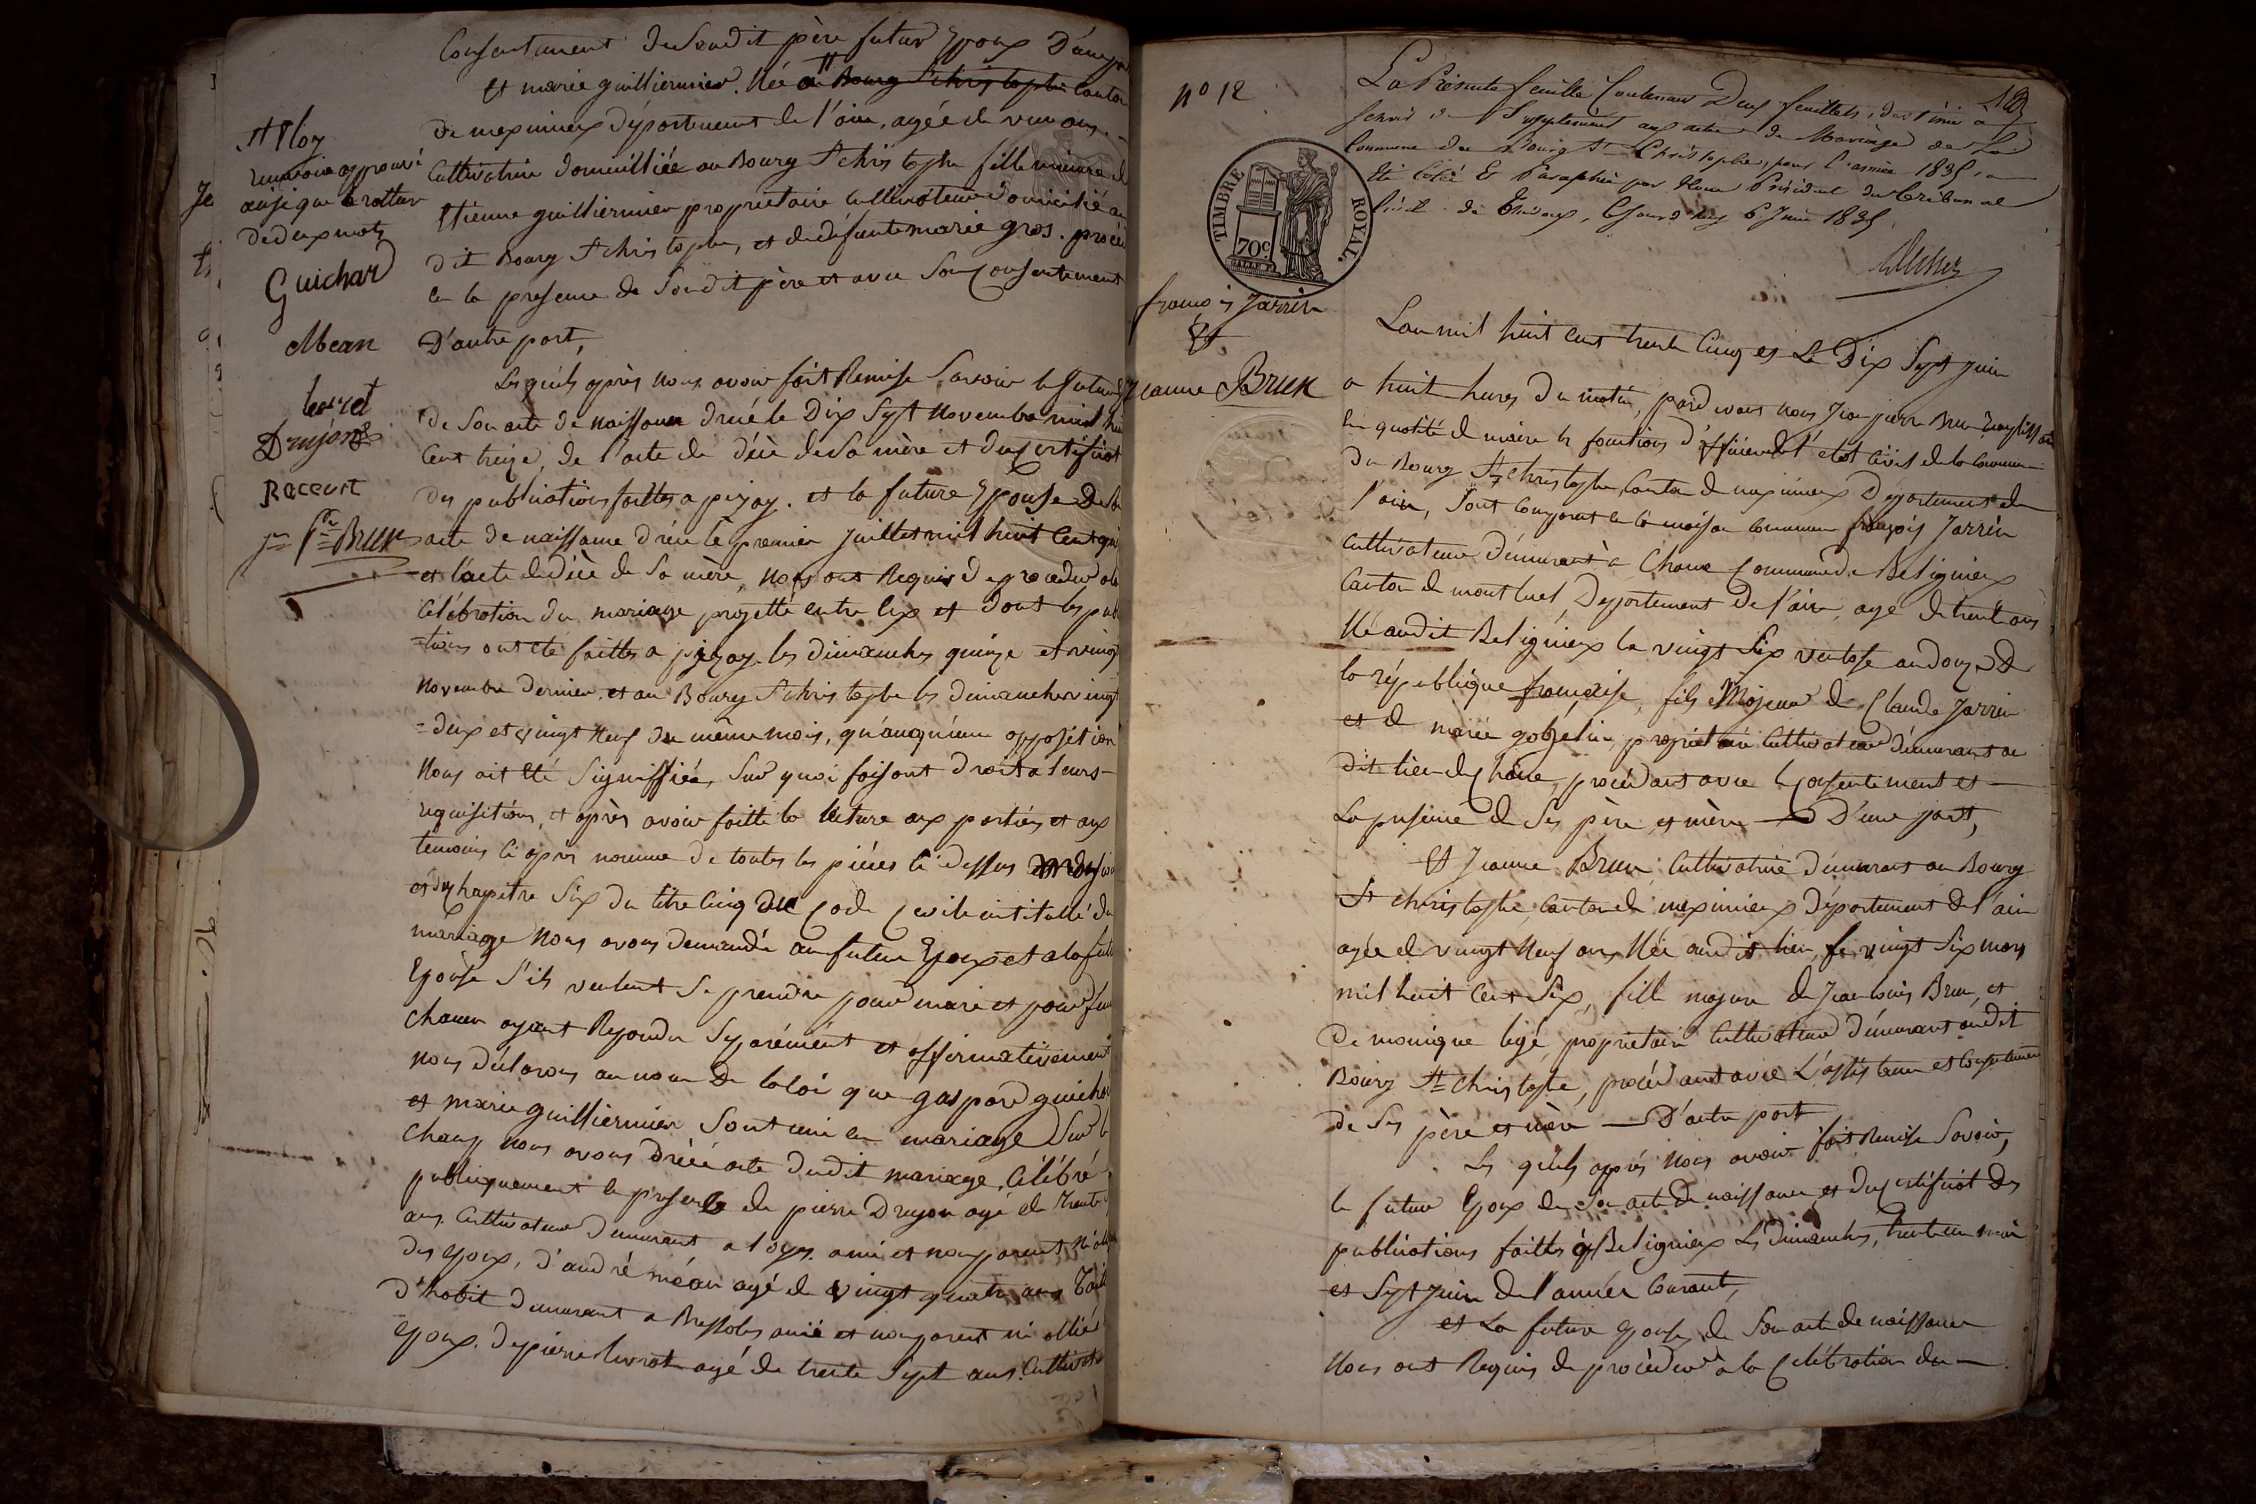 Consentement de Sondit père futur Epoux D'une
et marie guilliermier. Née a Bourg St christophe Canton
de meximieux département de l'ain, agée de vint ans
Cultivatrice domicilliée au Bourg St christophe fille mineure de
Etienne guilliermier propriétaire cultivateur domicilié au
dit Bourg St christophe, et de défunte marie gros. procéd
en la presence de Sondit père et avec Son Consentement
D'autre part,
Les quels après nous avoir fait Remise Savoir le futur
de Son acte de naissance dréé le Dix Sept Novembre mil hui
Cent treize, de l'acte de décè de Sa mère et du Certificat
des publications faittes a pizay. et la future Epouse De Son
acte de naissance dréé le premier juillet mil huit Cent qui
et l'acte de décè de Sa mère, nous ont Requis de proceder a la
Célébration du mariage projetté entre eux et dont les publ
=tions ont été faittes a pizay les dimanches quinze et vingt
Novembre dernier et au Bourg St christophe les dimanches vingt
=deux et vingt Neuf du même mois, qu'auqu'une opposition
Nous ait été Signiffiée, Sur quoi faisant droit a leurs
requisitions, et après avoir faitte la lecture aux parties et aux
temoins ci après nommé de toutes les pièces ci dessus
et du chapitre Six du titre Cinq du Code Civile intitullé du
mariage Nous avons demandé au futur Epoux et a la futu
Epouse S'ils veulent Se prendre pour mari et pour fem
chacun ayant Repondu Séparément et affirmativement
nous déclarons au nom De la loi que gaspard guichar
et marie guilliermier Sont uni en mariage Sur l
champ nous avons dréé acte dudit mariage, Célébré
publiquement en presence de pierre Drujon agé de trente
ans Cultivateur demeurant a loyes ami et non parent ni alli
des Epoux, d'andré méan agé de vingt quatre ans Taill
d'habit demeurant a Bressolles ami et non parent ni allié
Epoux. de pierre agé de trente Sept ans Cultivat
St Eloy
renvoi approuvé
ainsi que la rature
de deux mots
Guichar
Mean
Drujon
Racourt
jn Pre Brun
no 12
La Présente feuille Contenant Deux feuillets, destinée à
Servir de Supplément aux actes de Mariage de La
Commune du Bourg St Christophe, pour l'année 1835, a
Eté Cotée & Paraphée par Nous Président du Tribunal
Civil de Trévoux, Ce jourd'huy 6 Juin 1835.
TIMBRE ROYAL.
70c
françois Jarrin
Et
Jeanne Brun
L'an mil huit cent trente Cinq et Le Dix Sept Juin
a huit heures du matin, pard evant nous Jean pierre Brun
en qualité de maire les fonctions d'officier de l'état civil de la Commune
du Bourg St christophe, Canton de meximieux Département de
l'ain, Sont Comparut en la maison Commune françois Jarrin
Cultivateur démeurant à Chane Commune de Beligneux
Canton de montluel, Département De l'ain, agé de trent'ans
Né audit Beligneux le vingt Six ventose an douze De
la république française, fils Majeur de Claude Jarrin
et de marie gobzelin, propriétaire Cultivateur démeurant au
dit lieu de Chane, procédant avec le Consentement et
La présence de Ses père et mère — D'une part,
Et Jeanne Brun Cultivatrice démeurant au Bourg
St christophe, Canton de meximieux Département de l'ain
agée de vingt Neuf ans, Née audit lieu, le vingt Six mars
mil huit Cent Six, fille majeure de Jean louis Brun, et
De monique ligé propriétaire Cultivateur démeurant audit
Bourg St christophe, procédant avec L'assistance et Consentement
de Ses père et mère — D'autre part
Les quels après Nous avoir fait Remise Savoir,
le futur Epoux de Son acte De naissance et du Certificat des
publications faittes à Beligneux Les Dimanches, trente un mai
et Sept Juin de l'année Courant,
et La future Epouse de Son acte de naissance
Nous ont Requis de procéder a la Célébration du